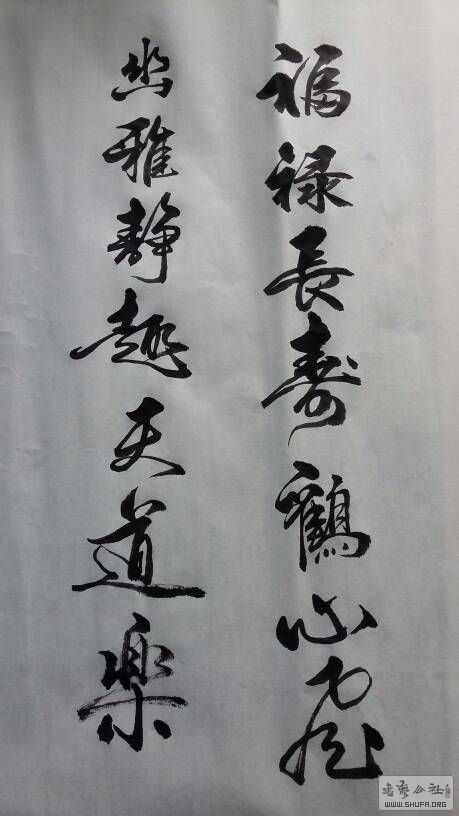 福禄長壽鶴心
幽雅靜趣天道樂
書藝公社
WWW.SHUFA.ORG